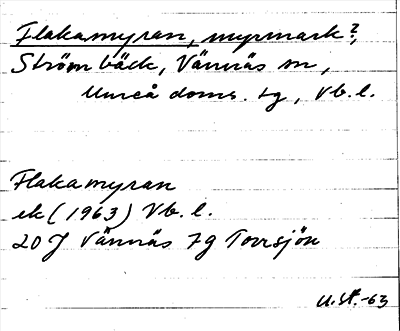 Flakamyran, myrmark?,
Strömbäck, Vännäs sn,
Umeå doms. tg, Vb. l.
Flakamyran
ek (1963) Vb. l.
20J Vännäs 7g Torrsjön
U.St.-63